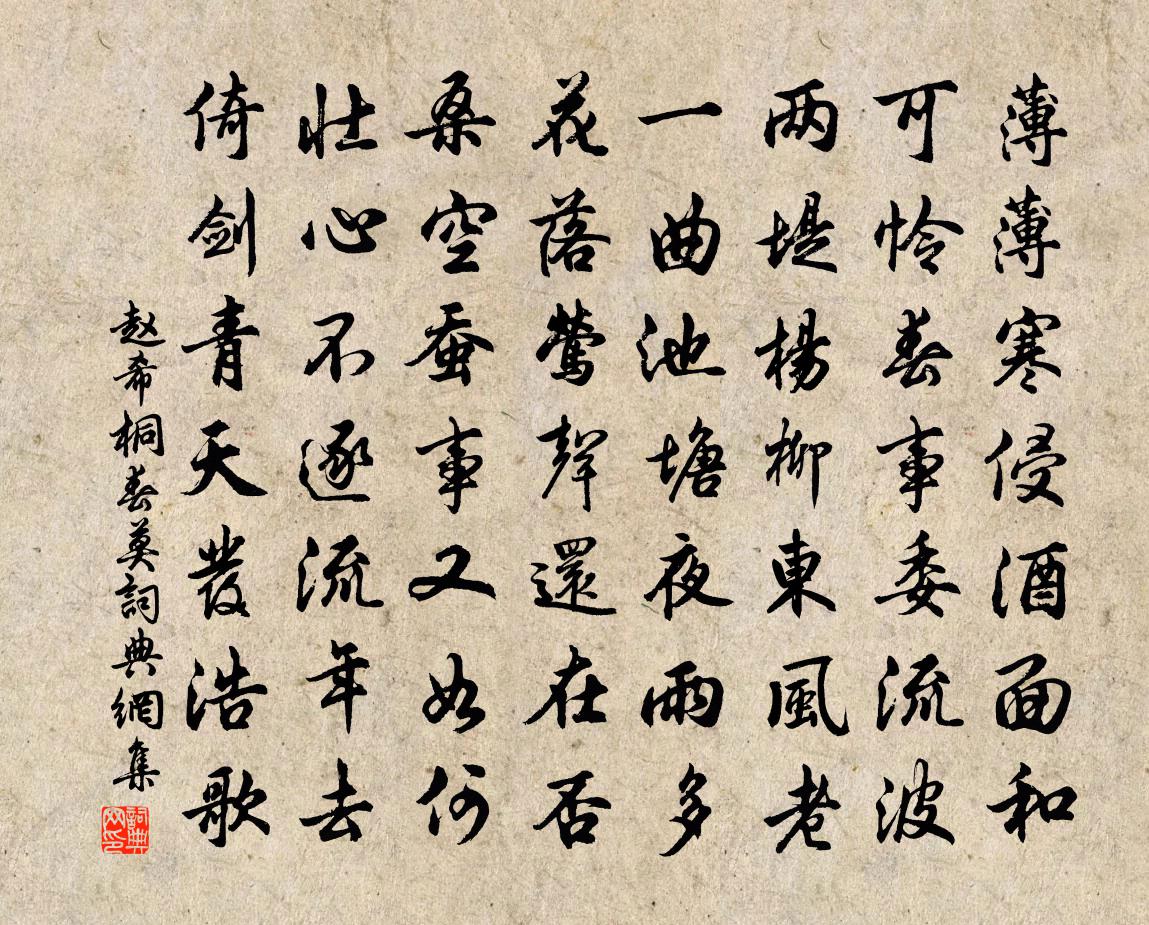 薄薄寒侵酒面和
可怜春事委流波
两堤楊柳東風老
一曲池塘夜雨多
花落莺聲還在否
桑空蚕事又如何
壮心不逐流年去
倚剑青天發浩歌
赵希桐春莫詞典網集
詞典网印